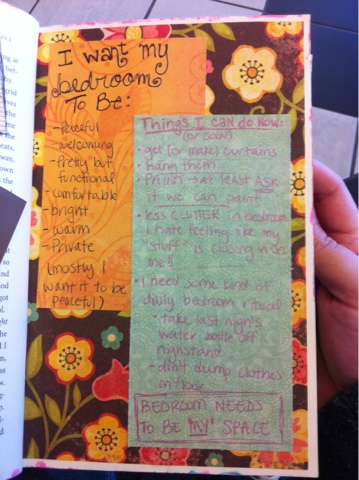 I want my
bedroom
To Be:
- Peaceful
- welcoming
- Pretty but
functional
- comfortable
- bright
- warm
- Private
(mostly I
want it to be
peaceful)
Things I can do now:
(or soon)
• get (or make) curtains
• hang them
• PAINT → at least ASK
if we can paint
• less CLUTTER in bedroom
I hate feeling like my
"stuff" is closing in on
me!!
• I need some kind of
daily bedroom ritual
- take last night's
water bottle off
nightstand
- don't dump clothes
on floor
BEDROOM NEEDS
TO BE MY SPACE